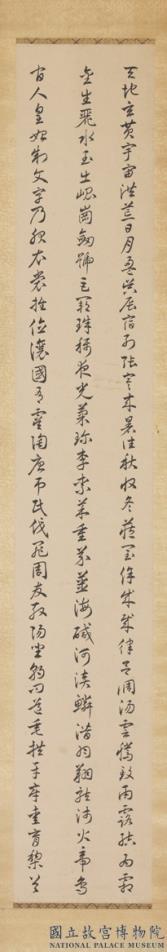 天地玄黃宇宙洪荒日月盈昃辰宿列張寒來暑往秋收冬藏閏餘成歲律呂調陽雲騰致雨露結為霜
金生麗水玉出崑崗劍號巨闕珠稱夜光菓珍李柰菜重芥薑海鹹河淡鱗潛羽翔龍師火帝鳥
官人皇始制文字乃服衣裳推位讓國有虞陶唐弔民伐罪周發殷湯坐朝問道垂拱平章愛育黎首
國立故宮博物院
NATIONAL PALACE MUSEUM